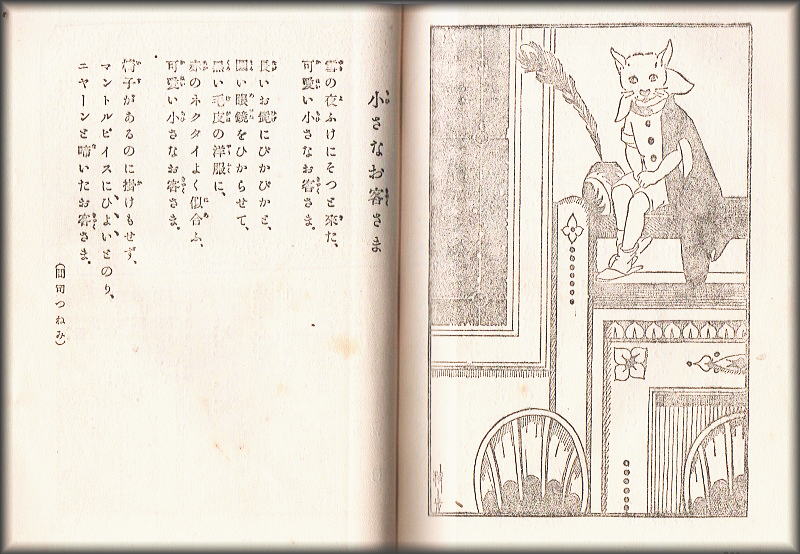 小さなお客さま
雪の夜ふけにそつと來た、
可愛い小さなお客さま。
長いお髭にぴかぴかと、
圓い眼鏡をひからせて、
黒い毛皮の洋服に、
赤のネクタイよく似合ふ、
可愛い小さなお客さま。
椅子があるのに掛けもせず、
マントルピイスにひよいとのり、
ニヤーンと啼いたお客さま。
（間司つねみ）